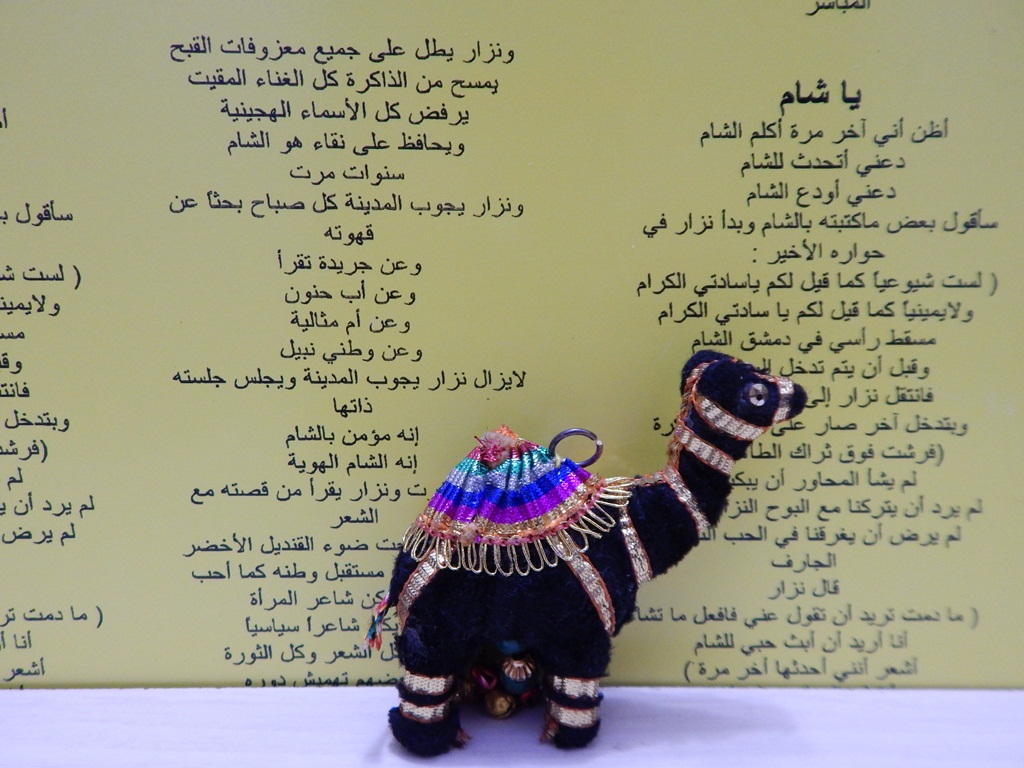 المباشر
يا شام
أظن أني آخر مرة أكلم الشام
دعني أتحدث للشام
دعني أودع الشام
سأقول بعض ماكتبته بالشام وبدأ نزار في
حواره الأخير :
( لست شيوعياً كما قيل لكم ياسادتي الكرام
ولايمينياً كما قيل لكم يا سادتي الكرام
مسقط رأسي في دمشق الشام
وقبل أن يتم تدخل
فانتقل نزار إلى
ويتدخل آخر صار على
(فرشت فوق ثراك
لم يشأ المحاور أن
لم يرد أن يتركنا مع البوح
لم يرض أن يغرقنا في الحب
الجارف
قال نزار
( ما دمت تريد أن تقول عني فافعل ما تشاء
أنا أريد أن أبث حبي للشام
أشعر أنني أحدثها آخر مرة )
ونزار يطل على جميع معزوفات القبح
يمسح من الذاكرة كل الغناء المقيت
يرفض كل الأسماء الهجينية
ويحافظ على نقاء هو الشام
سنوات مرت
ونزار يجوب المدينة كل صباح بحثاً عن
قهوته
وعن جريدة تقرأ
وعن أب حنون
وعن أم مثالية
وعن وطني نبيل
لايزال نزار يجوب المدينة ويجلس جلسته
ذاتها
إنه مؤمن بالشام
إنه الشام الهوية
ونزار يقرأ من قصته مع
الشعر
ضوء القنديل الأخضر
مستقبل وطنه كما أحب
شاعر المرأة
شاعراً سياسياً
الشعر وكل الثورة
تهميش دوره
سأقول
( لست
مسقط
(فرشت
لم
لم يرد أن
لم يرض
( ما دمت
أنا
أشعر